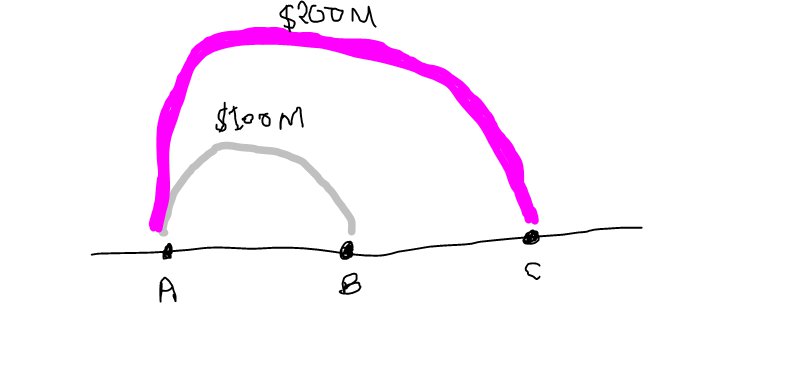 $200M
$100M
A
B
C